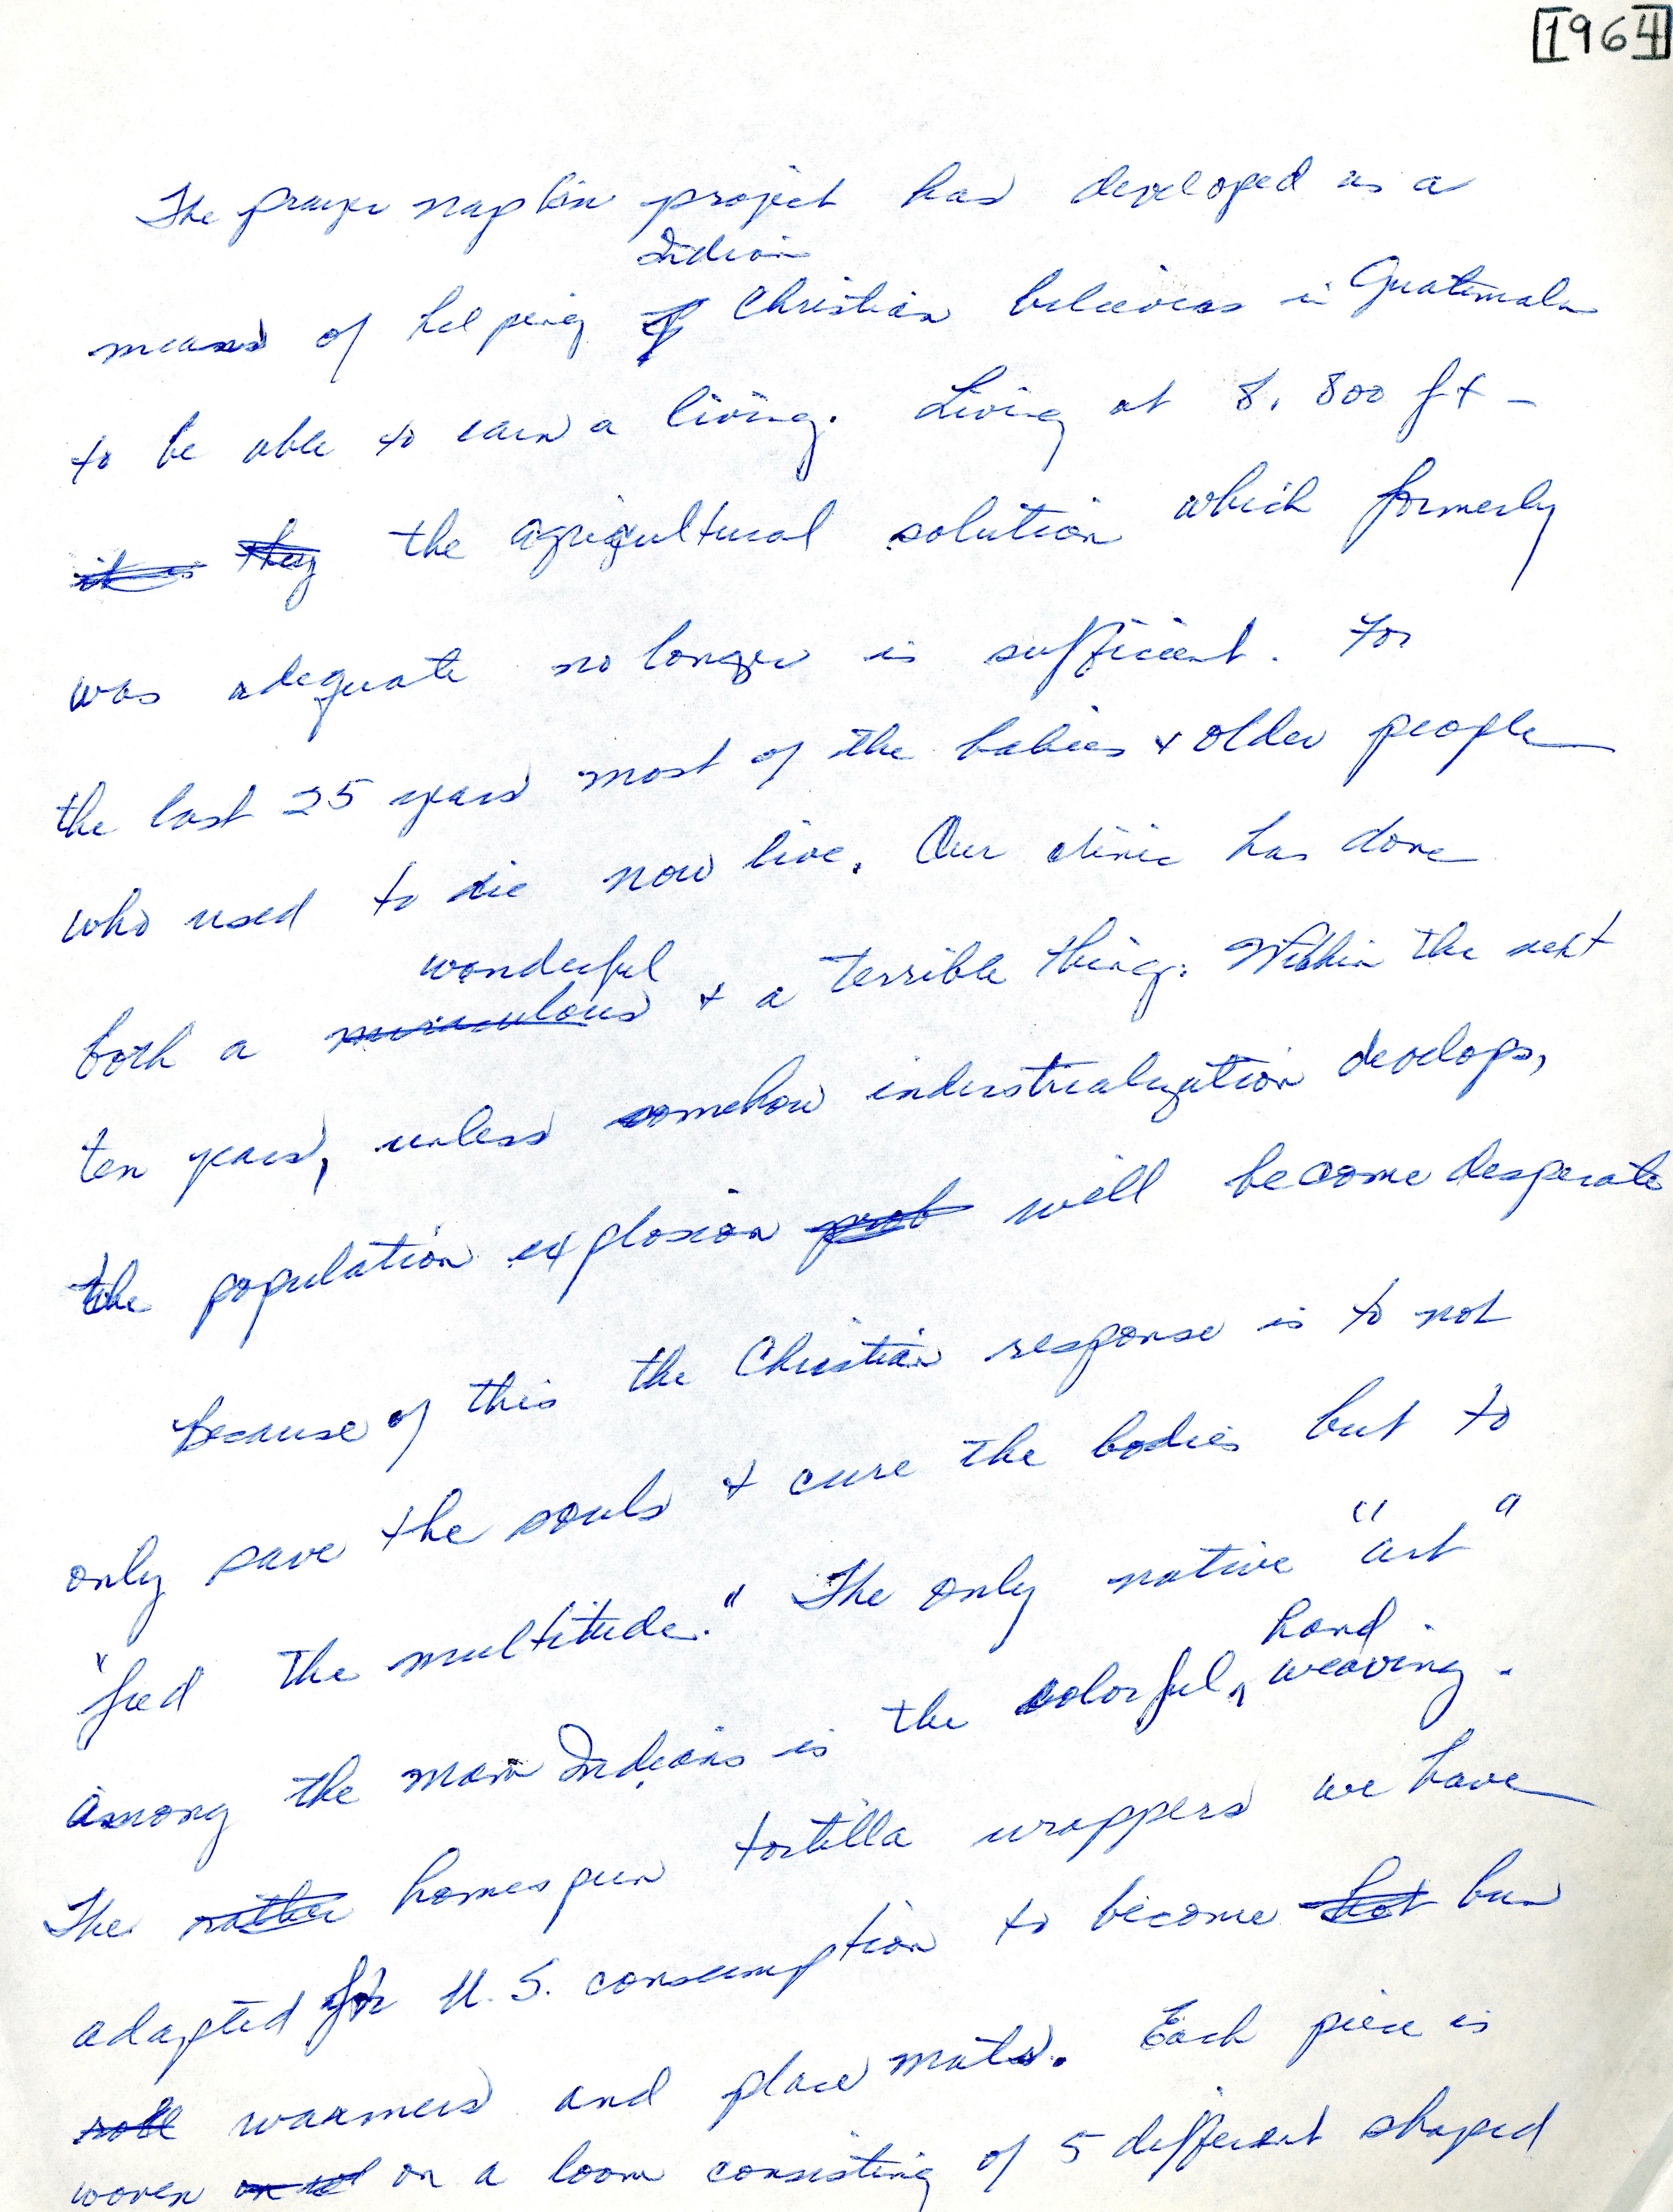 [1964]
The prayer napkin project has developed as a
Indian
means of helping Christian believers in Guatemala
to be able to earn a living. Living at 8,800 ft -
it is they the agricultural solution which formerly
was adequate no longer is sufficient. For
the last 25 years most of the babies + older people
who used to die now live. Our clinic has done
wonderful
both a miraculous + a terrible thing. Within the next
ten years, unless somehow industrialization develops,
the population explosion prob will become desperate
Because of this the Christian response is to not
only save the souls + cure the bodies but to
"feed the multitude." The only native "art"
hand
among the Mam Indians is the colorful, weaving.
The rather homespun tortilla wrappers we have
adapted for U.S. consumption to become hot bun
roll warmers and place mats. Each piece is
woven on a loom consisting of 5 different shaped